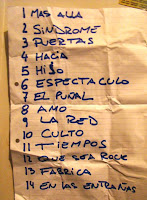 1 MAS ALLA
2 SINDROME
3 PUERTAS
4 HACIA
5 HIJO
6 ESPECTACULO
7 EL PUÑAL
8 AMO
9 LA RED
10 CULTO
11 TIEMPOS
12 QUE SEA ROCK
13 FABRICA
14 EN LAS ENTRAÑAS